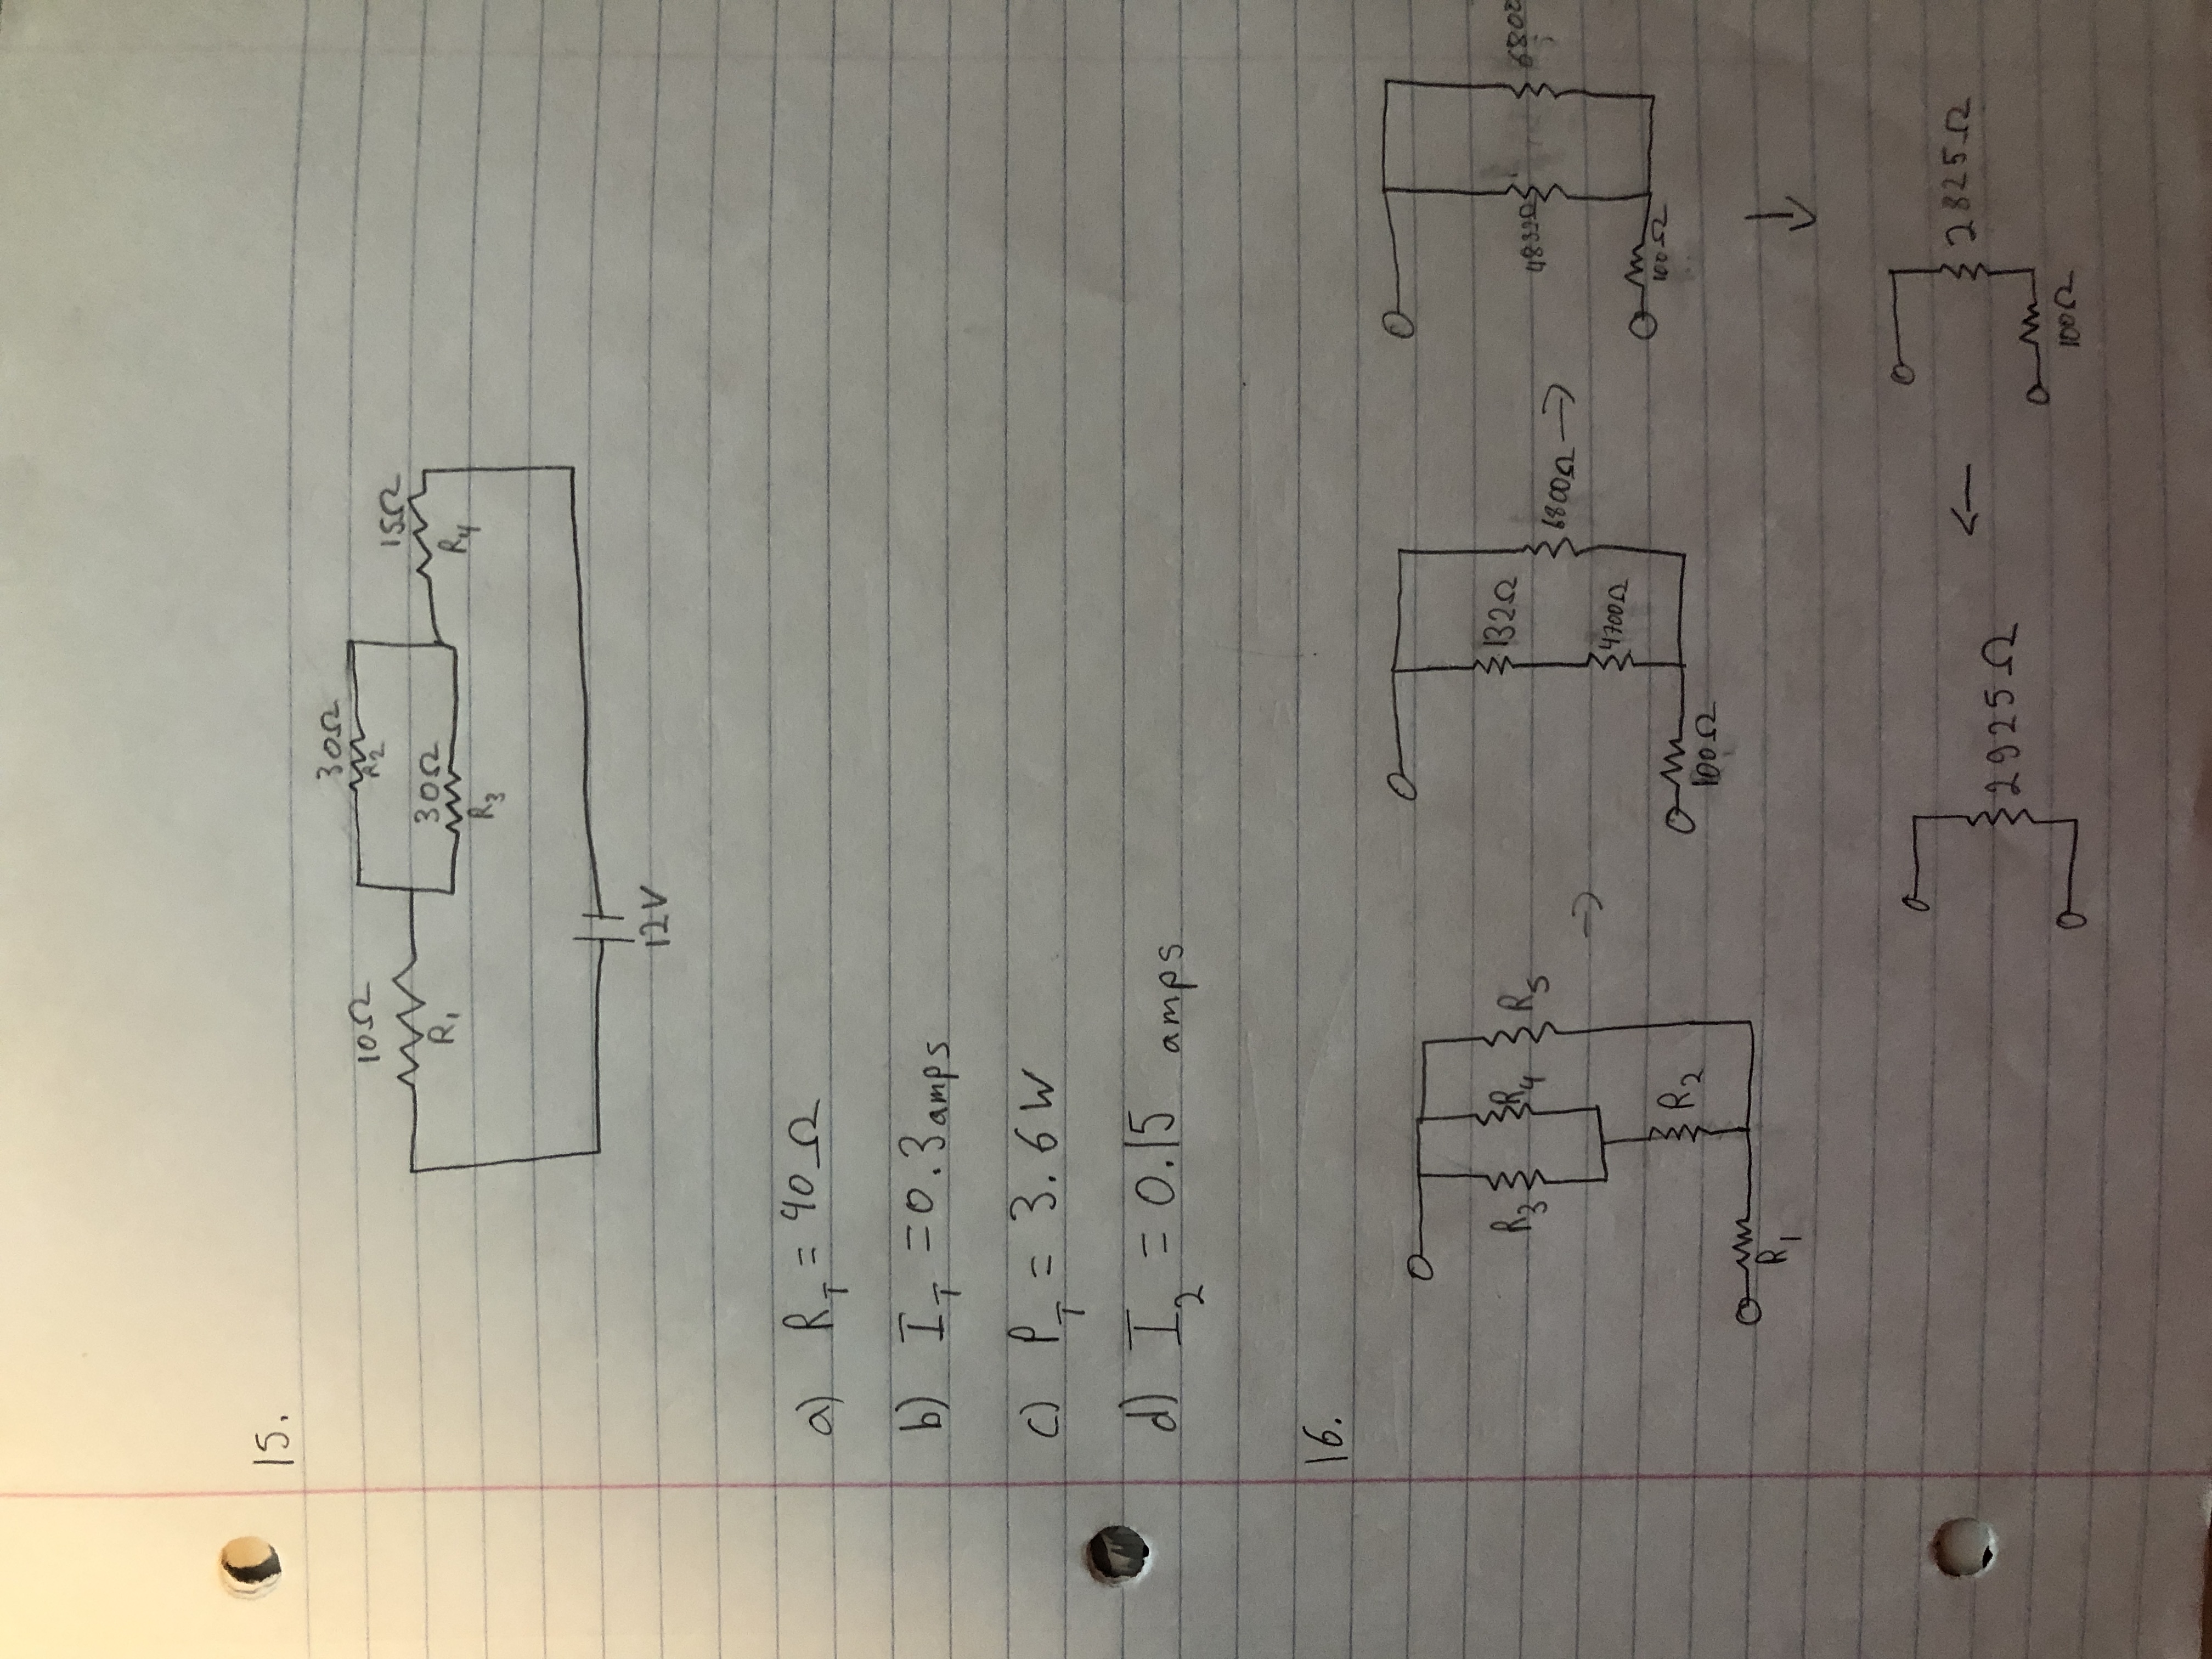 15.
10Ω
R₁
30Ω
R₂
30Ω
R₃
15Ω
R₄
12V
a) R_T = 40Ω
b) I_T = 0.3 amps
c) P_T = 3.6W
d) I₂ = 0.15 amps
16.
R₃ R₄ R₅
R₂
R₁
→
132Ω
6800Ω
4700Ω
100Ω
→
100Ω
↓
2825Ω
100Ω
←
2925Ω